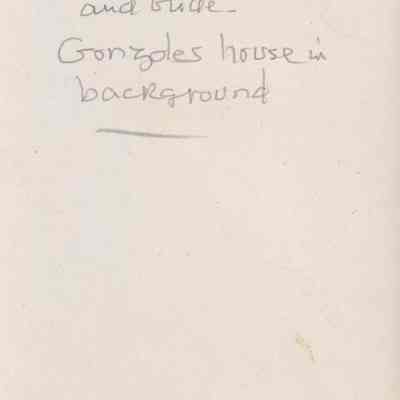 and
Gonzoles house in
background